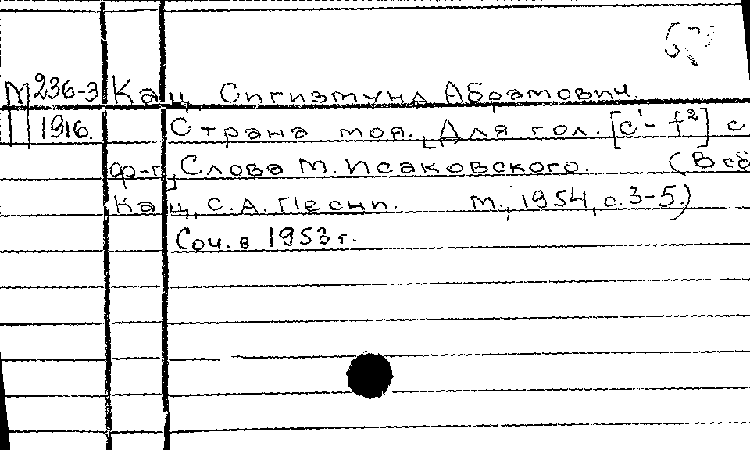 М 236-3 Кац, Сигизмунд Абрамович.
1916. Страна моя. [Для гол. [с¹-f²] с
ф-п.] Слова М. Исаковского. (В сб
Кац, С.А. Песни. М., 1954, с. 3-5.)
Соч. в 1953 г.